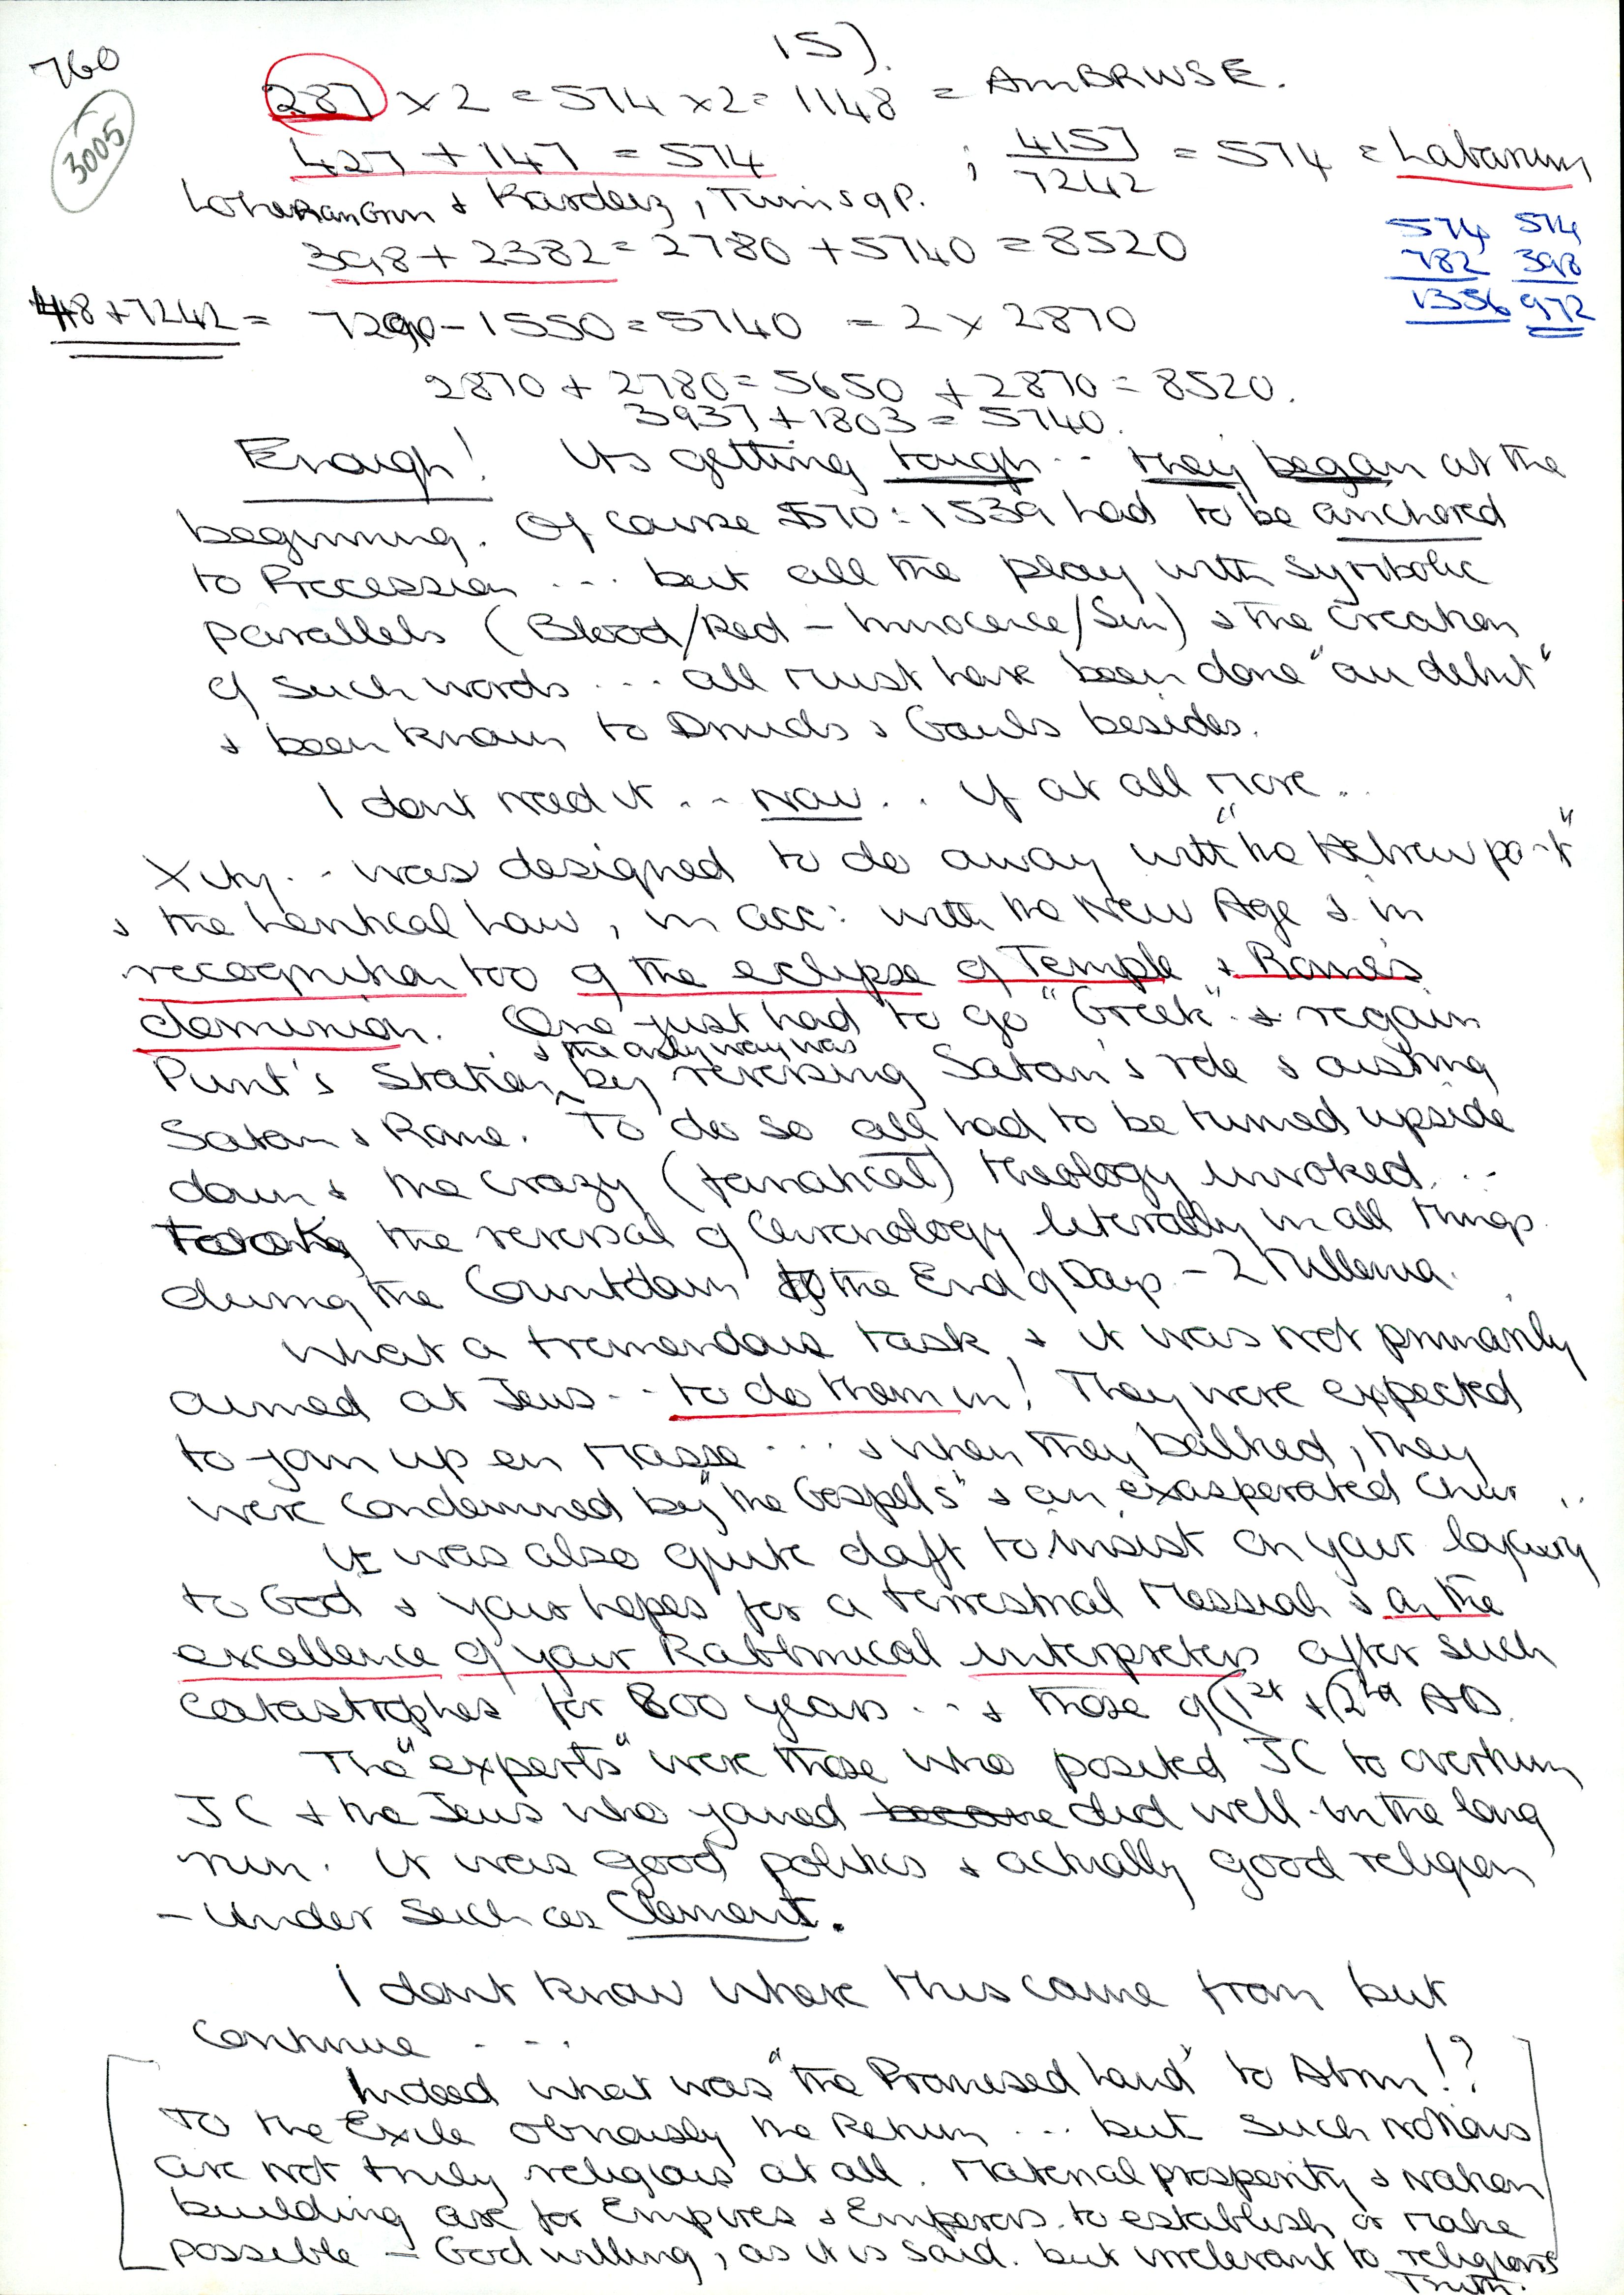 15).
760
3005
287 x 2 = 574 x 2 = 1148 = AmBRWSE.
427 + 147 = 574 ; 4157 / 7242 = 574 = Labarum
LoheRanGrin & Kardeiz, Turnis qp.
398 + 2382 = 2780 + 5740 = 8520
574 574
782 398
1356 972
48 + 7242 = 7290 - 1550 = 5740 = 2 x 2870
2870 + 2780 = 5650 + 2870 = 8520.
3937 + 1803 = 5740.
Enough! Its getting tough .. they began at the
beginning. Of course 570 : 1539 had to be anchored
to Precession ... but all the play with symbolic
parallels (Blood/Red - Innocence/Sin) & the creation
of such words ... all must have been done "au debut"
& been known to Druids & Gauls besides.
I dont need it .. now .. if at all more ..
Xity .. was designed to do away with "the Hebrew part"
& the Levitical Law, in acc: with the New Age & in
recognition too of the eclipse of Temple & Rome's
dominion. One just had to go "Greek" & regain
Punt's Station & the only way was by reversing Satan's role & ousting
Satan & Rome. To do so all had to be turned upside
down & the crazy (fanatical) theology invoked ...
the reversal of Chronology literally in all things
during the Countdown to the End of Days - 2 Millenia.
What a tremendous task & it was not primarily
aimed at Jews .. to do them in! They were expected
to join up en masse ... & when they balked, they
were condemned by "the Gospels" & an exasperated Chur ..
It was also quite daft to insist on your loyalty
to God & your hopes for a terrestrial Messiah & on the
excellence of your Rabbinical interpreters after such
catastrophes for 800 years ... & those of (1st + (2nd AD.
The "experts" were those who posited JC to overturn
JC & the Jews who joined become did well in the long
run. It was good politics & actually good religion
- Under such as Clement.
I dont know where this came from but
continue ...
Indeed what was "the Promised Land" to Abrm!?
To the Exile obviously the Return ... but such notions
are not truly religious at all. Material prosperity & nation
building are for Empires & Emperors to establish or make
possible - God willing, as it is said. but irrelevant to religious
Truth.